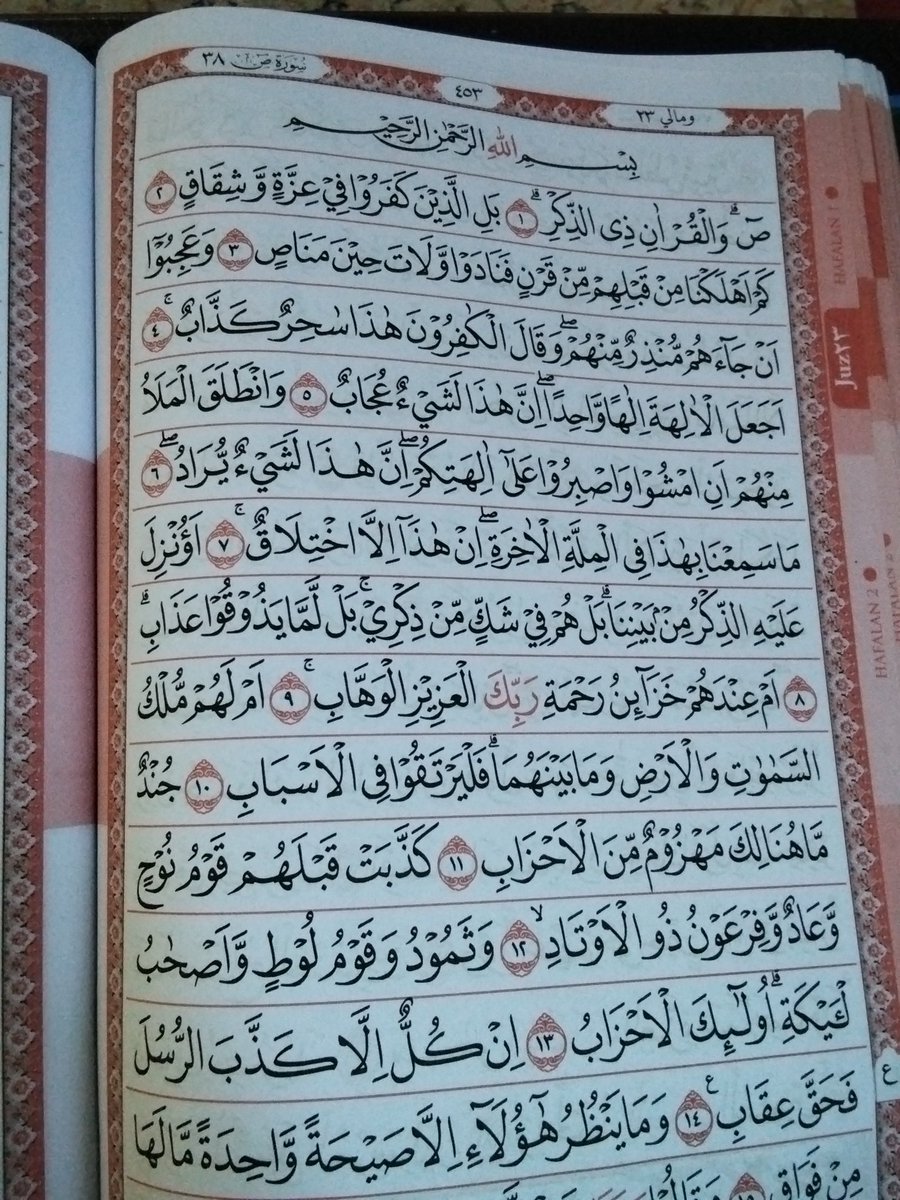 سُوْرَةُ صۤ ٣٨
٤٥٣
وَمَالِيَ ٢٣
بِسْمِ اللّٰهِ الرَّحْمٰنِ الرَّحِيْمِ
صۤ ۗوَالْقُرْاٰنِ ذِى الذِّكْرِۗ ١ بَلِ الَّذِيْنَ كَفَرُوْا فِيْ عِزَّةٍ وَّشِقَاقٍ ٢
كَمْ اَهْلَكْنَا مِنْ قَبْلِهِمْ مِّنْ قَرْنٍ فَنَادَوْا وَّلَاتَ حِيْنَ مَنَاصٍ ٣ وَعَجِبُوْٓا
اَنْ جَاۤءَهُمْ مُّنْذِرٌ مِّنْهُمْ ۖوَقَالَ الْكٰفِرُوْنَ هٰذَا سٰحِرٌ كَذَّابٌۚ ٤
اَجَعَلَ الْاٰلِهَةَ اِلٰهًا وَّاحِدًا ۖاِنَّ هٰذَا لَشَيْءٌ عُجَابٌ ٥ وَانْطَلَقَ الْمَلَاُ
مِنْهُمْ اَنِ امْشُوْا وَاصْبِرُوْا عَلٰٓى اٰلِهَتِكُمْ ۖاِنَّ هٰذَا لَشَيْءٌ يُّرَادُ ۖ ٦
مَا سَمِعْنَا بِهٰذَا فِى الْمِلَّةِ الْاٰخِرَةِ ۖاِنْ هٰذَآ اِلَّا اخْتِلَاقٌۚ ٧ اَؤُنْزِلَ
عَلَيْهِ الذِّكْرُ مِنْۢ بَيْنِنَا ۗبَلْ هُمْ فِيْ شَكٍّ مِّنْ ذِكْرِيْۚ بَلْ لَّمَّا يَذُوْقُوْا عَذَابِۗ
٨ اَمْ عِنْدَهُمْ خَزَاۤىِٕنُ رَحْمَةِ رَبِّكَ الْعَزِيْزِ الْوَهَّابِۚ ٩ اَمْ لَهُمْ مُّلْكُ
السَّمٰوٰتِ وَالْاَرْضِ وَمَا بَيْنَهُمَا ۗفَلْيَرْتَقُوْا فِى الْاَسْبَابِ ١٠ جُنْدٌ
مَّا هُنَالِكَ مَهْزُوْمٌ مِّنَ الْاَحْزَابِ ١١ كَذَّبَتْ قَبْلَهُمْ قَوْمُ نُوْحٍ
وَّعَادٌ وَّفِرْعَوْنُ ذُو الْاَوْتَادِۙ ١٢ وَثَمُوْدُ وَقَوْمُ لُوْطٍ وَّاَصْحٰبُ
لْـَٔيْكَةِ ۗ اُولٰۤىِٕكَ الْاَحْزَابُ ١٣ اِنْ كُلٌّ اِلَّا كَذَّبَ الرُّسُلَ
فَحَقَّ عِقَابِ ࣖ ١٤ وَمَا يَنْظُرُ هٰٓؤُلَاۤءِ اِلَّا صَيْحَةً وَّاحِدَةً مَّا لَهَا
مِنْ فَوَاقٍ
HAFALAN 1
Juz ٢٣
HAFALAN 2
ع